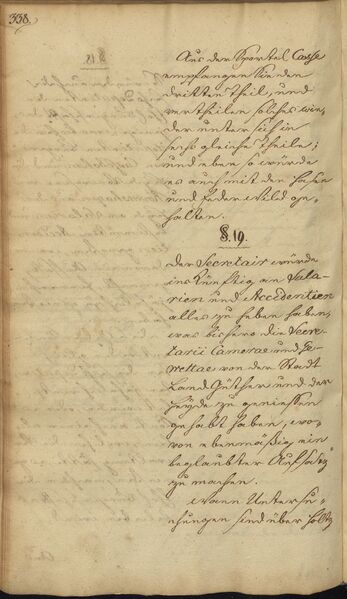 338.
Aus der Sportel Casse
empfangen Sie den
dritten Theil, und
vertheilen solches wie,
der unter sich in
sechs gleiche Theile;
und eben so würde
es auch mit den Hasen
und Federwild ge,
halten.
§. 19.
Der Secretair würde
ins Künftig an Sala,
rien und Accidentien
alles zu heben haben,
was bishero die Secre,
tarii Camerae und
von der Stadt
Land Güther und der
Heyde zu geniessen
gehabt haben, wo,
von ebenmäßig ein
beglaubter Aufsatz
zu machen.
Wann Untersu,
chungen sind über Holtz